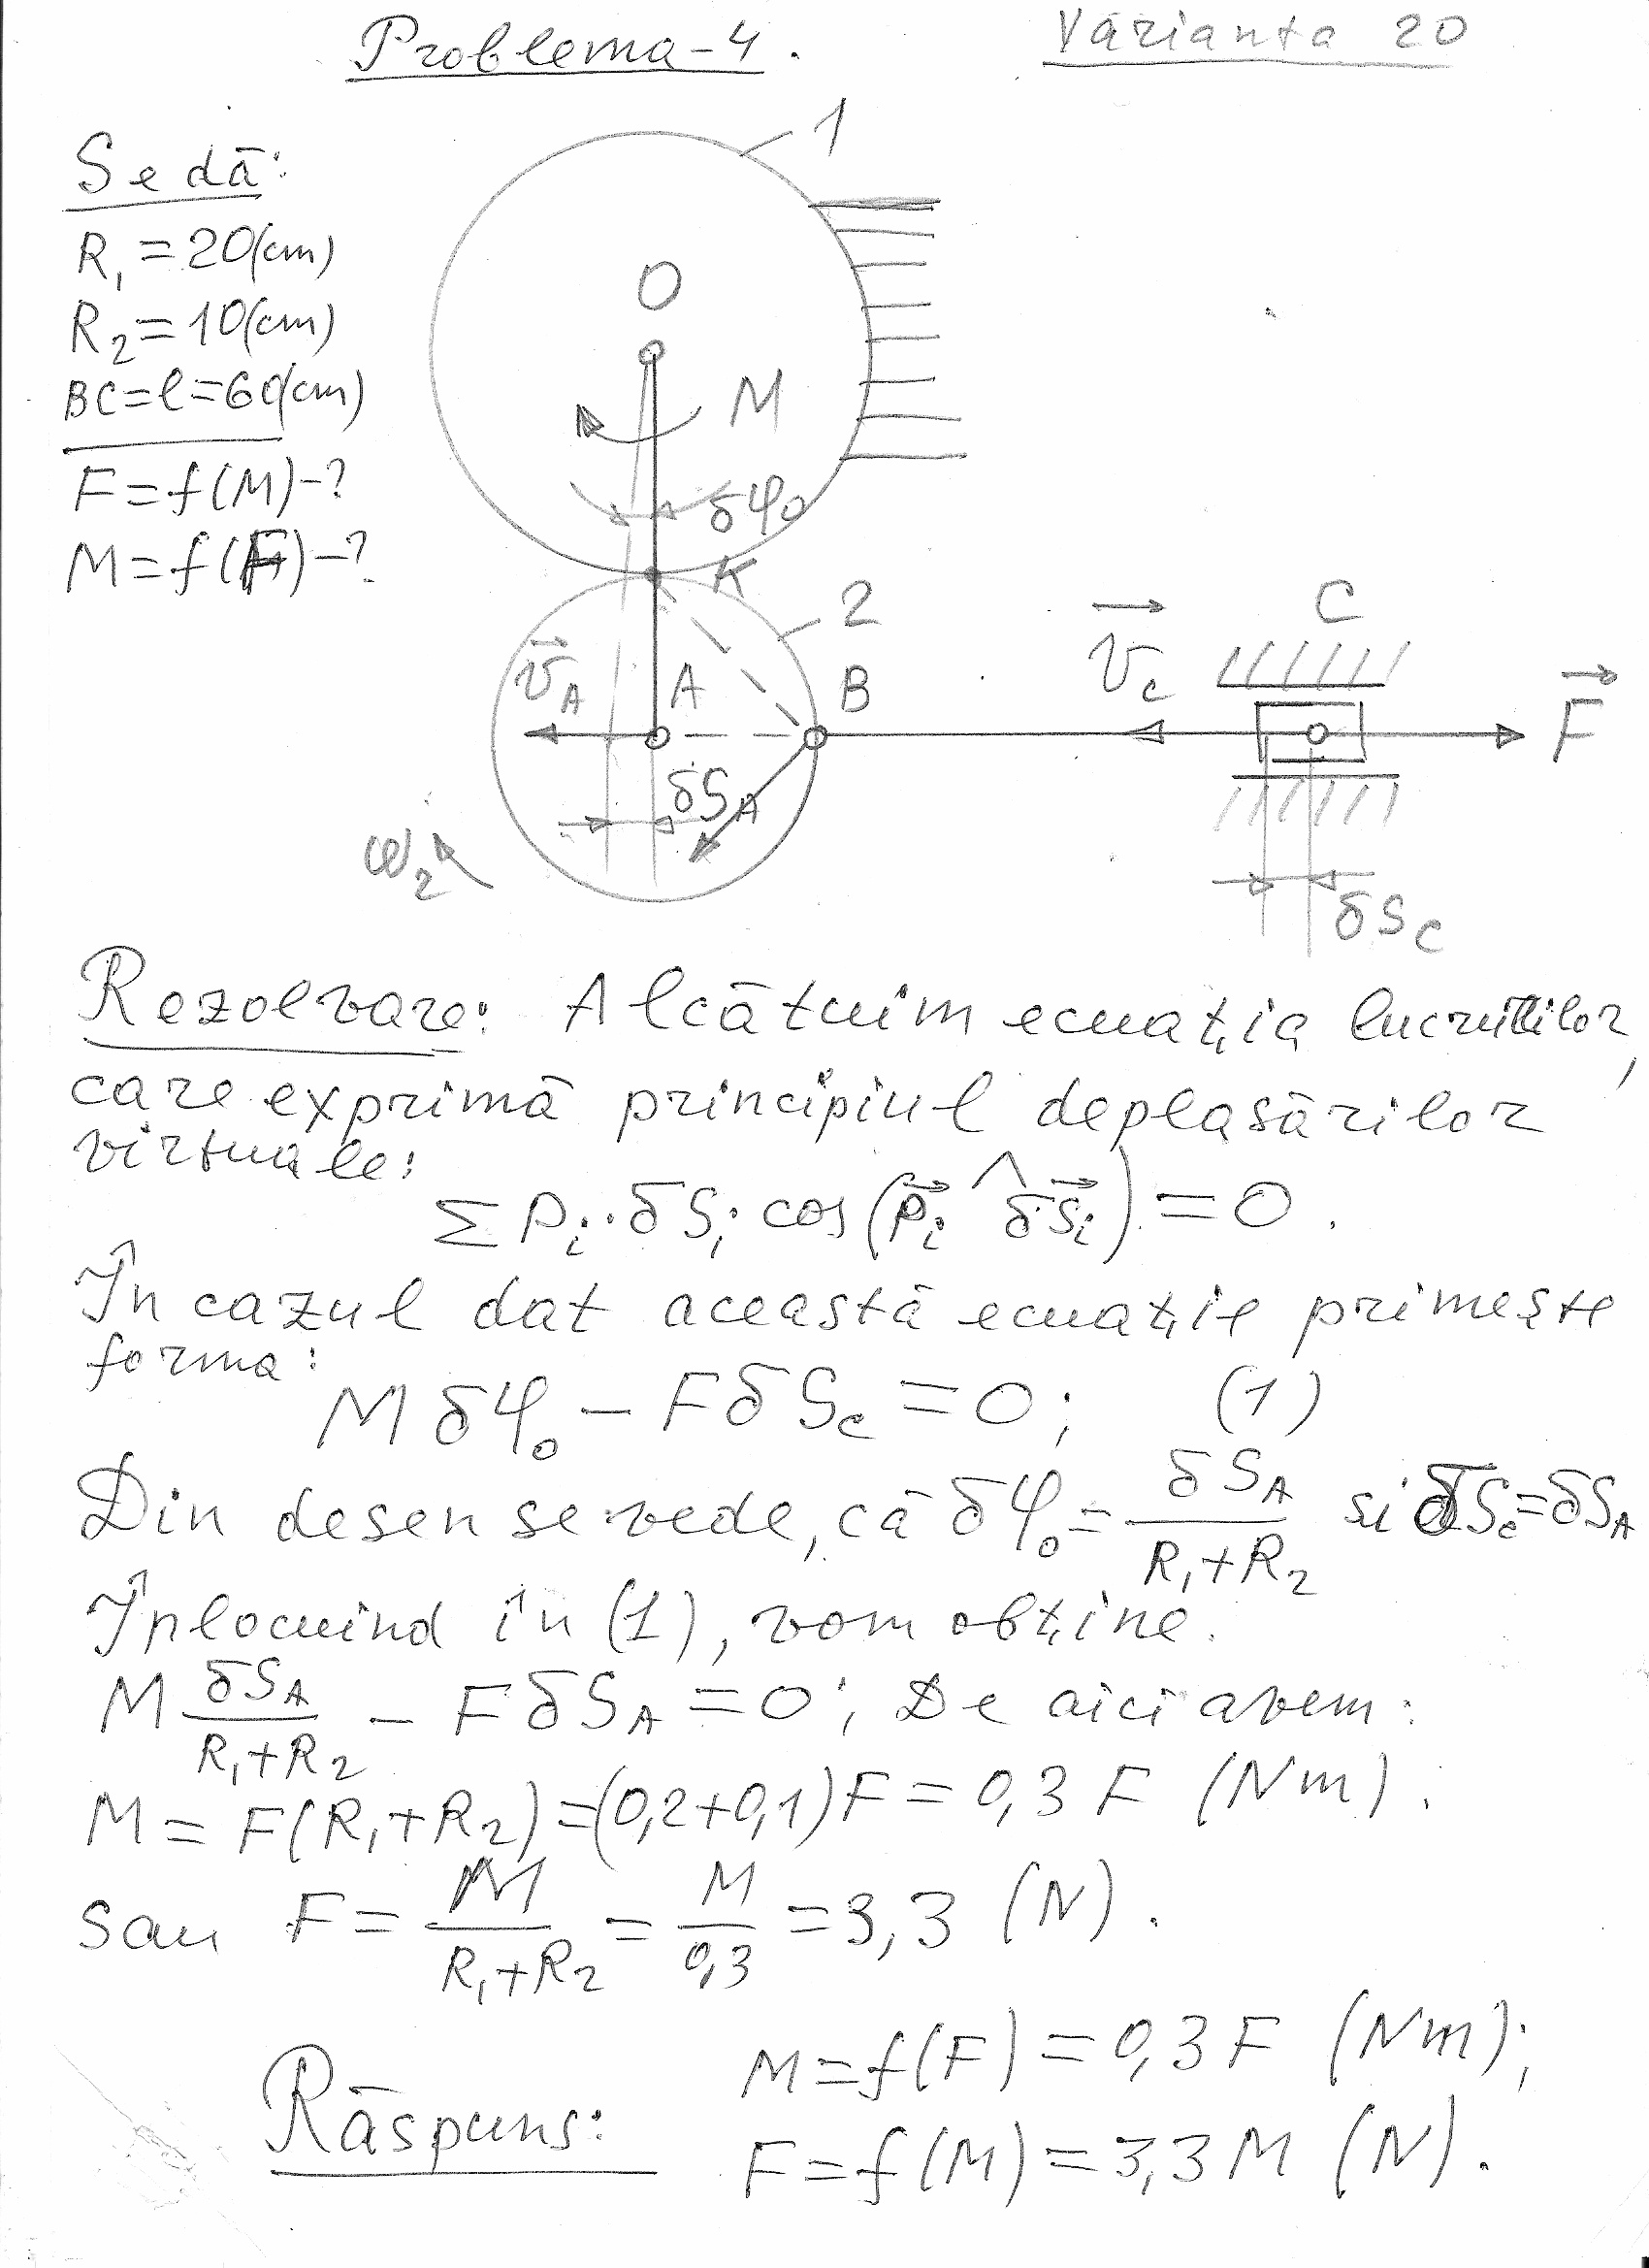 Problema-4.
Varianta 20
Se dă:
R₁ = 20(cm)
R₂ = 10(cm)
BC = l = 60(cm)
F = f(M) - ?
M = f(F) - ?
1
O
M
δφ₀
K
2
v⃗_A
A
B
v⃗_c
C
F⃗
δS_A
ω₂
δS_C
Rezolvare: Alcătuim ecuația lucrurilor,
care exprimă principiul deplasărilor
virtuale:
Σ Pᵢ · δSᵢ cos(P⃗ᵢ ^ δS⃗ᵢ) = 0.
În cazul dat această ecuație primește
forma:
M δφ₀ - F δS_c = 0; (1)
Din desen se vede, că δφ₀ = δS_A / (R₁+R₂) si δS_c = δS_A
Înlocuind în (1), vom obține.
M δS_A / (R₁+R₂) - F δS_A = 0; De aici avem:
M = F(R₁+R₂) = (0,2+0,1)F = 0,3 F (Nm).
sau F = M / (R₁+R₂) = M / 0,3 = 3,3 (N).
Răspuns:
M = f(F) = 0,3 F (Nm);
F = f(M) = 3,3 M (N).